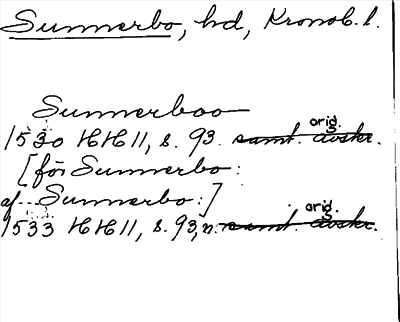 Sunnerbo, hd, Kronob. l.
Sunnerboo
1530 HH 11, s. 93. samt. avskr. orig.
[för Sunnerbo:
af Sunnerbo:]
1533 HH 11, s. 93, n. samt. avskr. orig.